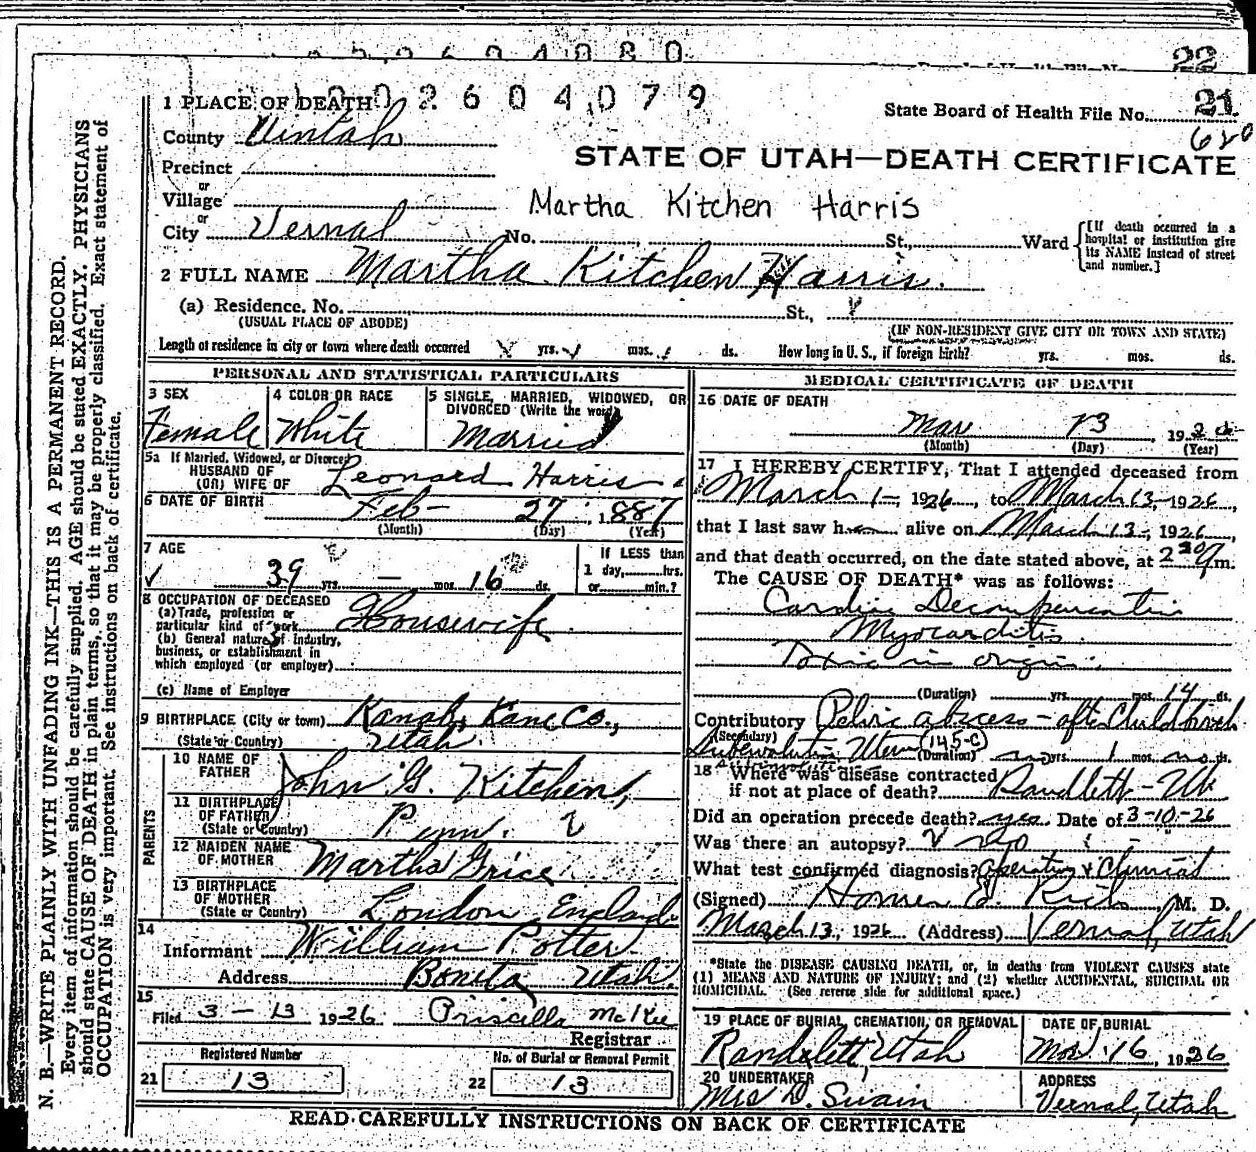 22
1 0 0 2 6 0 4 0 7 9
1 PLACE OF DEATH
State Board of Health File No. 21
County Uintah
620
STATE OF UTAH—DEATH CERTIFICATE
Precinct
or
Village
Martha Kitchen Harris
or
City Vernal No. St., Ward
[If death occurred in a hospital or institution give its NAME instead of street and number.]
2 FULL NAME Martha Kitchen Harris.
(a) Residence. No. St.,
(USUAL PLACE OF ABODE) (IF NON-RESIDENT GIVE CITY OR TOWN AND STATE)
Length of residence in city or town where death occurred yrs. mos. ds. How long in U. S., if foreign birth? yrs. mos. ds.
PERSONAL AND STATISTICAL PARTICULARS
3 SEX Female
4 COLOR OR RACE White
5 SINGLE, MARRIED, WIDOWED, OR DIVORCED (Write the word) Married
5a If Married, Widowed, or Divorced
HUSBAND OF
(OR) WIFE OF Leonard Harris
6 DATE OF BIRTH Feb- 27, 1887
(Month) (Day) (Year)
7 AGE
39 yrs. — mos. 16 ds.
If LESS than
1 day, hrs.
or min.?
8 OCCUPATION OF DECEASED
(a) Trade, profession or
particular kind of work Housewife
(b) General nature of industry,
business, or establishment in
which employed (or employer)
(c) Name of Employer
9 BIRTHPLACE (City or town) Kanab, Kane Co.,
(State or Country) Utah.
PARENTS
10 NAME OF FATHER John G. Kitchen,
11 BIRTHPLACE OF FATHER (State or Country) Penn.
12 MAIDEN NAME OF MOTHER Martha Grice
13 BIRTHPLACE OF MOTHER (State or Country) London, England
14
Informant William Potter
Address Bonita Utah.
15
Filed 3-13 1926 Priscilla McKee
Registrar
Registered Number
21 13
No. of Burial or Removal Permit
22 13
MEDICAL CERTIFICATE OF DEATH
16 DATE OF DEATH
Mar 13 192
(Month) (Day) (Year)
17 I HEREBY CERTIFY, That I attended deceased from
March 1-, 1926, to March 13-, 1926,
that I last saw h alive on March 13-, 1926,
and that death occurred, on the date stated above, at m.
The CAUSE OF DEATH* was as follows:
Cardiac Decompensation
Myocarditis
Toxic in origin.
(Duration) yrs. mos. 14 ds.
Contributory Pelvic abscess - after Childbirth
(Secondary) Subinvolution Uterus 145-C (Duration) yrs. 1 mos. ds.
18 Where was disease contracted
if not at place of death? Randlett - Ut
Did an operation precede death? yes. Date of 3-10-26
Was there an autopsy? no
What test confirmed diagnosis? Operation & Clinical
(Signed) Homer E. Rich, M. D.
March 13, 1926 (Address) Vernal, Utah
*State the DISEASE CAUSING DEATH, or, in deaths from VIOLENT CAUSES state
(1) MEANS AND NATURE OF INJURY; and (2) whether ACCIDENTAL, SUICIDAL OR
HOMICIDAL. (See reverse side for additional space.)
19 PLACE OF BURIAL, CREMATION, OR REMOVAL Randlett, Utah
DATE OF BURIAL Mar. 16, 1926
20 UNDERTAKER Mrs D. Swain
ADDRESS Vernal, Utah
READ CAREFULLY INSTRUCTIONS ON BACK OF CERTIFICATE
N. B.—WRITE PLAINLY WITH UNFADING INK—THIS IS A PERMANENT RECORD.
Every item of information should be carefully supplied. AGE should be stated EXACTLY. PHYSICIANS
should state CAUSE OF DEATH in plain terms, so that it may be properly classified. Exact statement of
OCCUPATION is very important. See instructions on back of certificate.